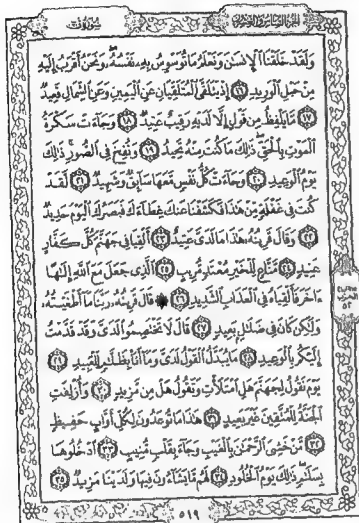 الجزء السادس والعشرون
سورة ق
وَلَقَدْ خَلَقْنَا ٱلْإِنسَٰنَ وَنَعْلَمُ مَا تُوَسْوِسُ بِهِۦ نَفْسُهُۥ وَنَحْنُ أَقْرَبُ إِلَيْهِ
مِنْ حَبْلِ ٱلْوَرِيدِ ١٦ إِذْ يَتَلَقَّى ٱلْمُتَلَقِّيَانِ عَنِ ٱلْيَمِينِ وَعَنِ ٱلشِّمَالِ قَعِيدٌ
١٧ مَّا يَلْفِظُ مِن قَوْلٍ إِلَّا لَدَيْهِ رَقِيبٌ عَتِيدٌ ١٨ وَجَآءَتْ سَكْرَةُ
ٱلْمَوْتِ بِٱلْحَقِّ ذَٰلِكَ مَا كُنتَ مِنْهُ تَحِيدُ ١٩ وَنُفِخَ فِى ٱلصُّورِ ذَٰلِكَ
يَوْمُ ٱلْوَعِيدِ ٢٠ وَجَآءَتْ كُلُّ نَفْسٍ مَّعَهَا سَآئِقٌ وَشَهِيدٌ ٢١ لَّقَدْ
كُنتَ فِى غَفْلَةٍ مِّنْ هَٰذَا فَكَشَفْنَا عَنكَ غِطَآءَكَ فَبَصَرُكَ ٱلْيَوْمَ حَدِيدٌ
٢٢ وَقَالَ قَرِينُهُۥ هَٰذَا مَا لَدَىَّ عَتِيدٌ ٢٣ أَلْقِيَا فِى جَهَنَّمَ كُلَّ كَفَّارٍ
عَنِيدٍ ٢٤ مَّنَّاعٍ لِّلْخَيْرِ مُعْتَدٍ مُّرِيبٍ ٢٥ ٱلَّذِى جَعَلَ مَعَ ٱللَّهِ إِلَٰهًا
ءَاخَرَ فَأَلْقِيَاهُ فِى ٱلْعَذَابِ ٱلشَّدِيدِ ٢٦ ۞ قَالَ قَرِينُهُۥ رَبَّنَا مَآ أَطْغَيْتُهُۥ
وَلَٰكِن كَانَ فِى ضَلَٰلٍۭ بَعِيدٍ ٢٧ قَالَ لَا تَخْتَصِمُوا۟ لَدَىَّ وَقَدْ قَدَّمْتُ
إِلَيْكُم بِٱلْوَعِيدِ ٢٨ مَا يُبَدَّلُ ٱلْقَوْلُ لَدَىَّ وَمَآ أَنَا۠ بِظَلَّٰمٍ لِّلْعَبِيدِ ٢٩
يَوْمَ نَقُولُ لِجَهَنَّمَ هَلِ ٱمْتَلَأْتِ وَتَقُولُ هَلْ مِن مَّزِيدٍ ٣٠ وَأُزْلِفَتِ
ٱلْجَنَّةُ لِلْمُتَّقِينَ غَيْرَ بَعِيدٍ ٣١ هَٰذَا مَا تُوعَدُونَ لِكُلِّ أَوَّابٍ حَفِيظٍ
٣٢ مَّنْ خَشِىَ ٱلرَّحْمَٰنَ بِٱلْغَيْبِ وَجَآءَ بِقَلْبٍ مُّنِيبٍ ٣٣ ٱدْخُلُوهَا
بِسَلَٰمٍ ذَٰلِكَ يَوْمُ ٱلْخُلُودِ ٣٤ لَهُم مَّا يَشَآءُونَ فِيهَا وَلَدَيْنَا مَزِيدٌ ٣٥
٥١٩